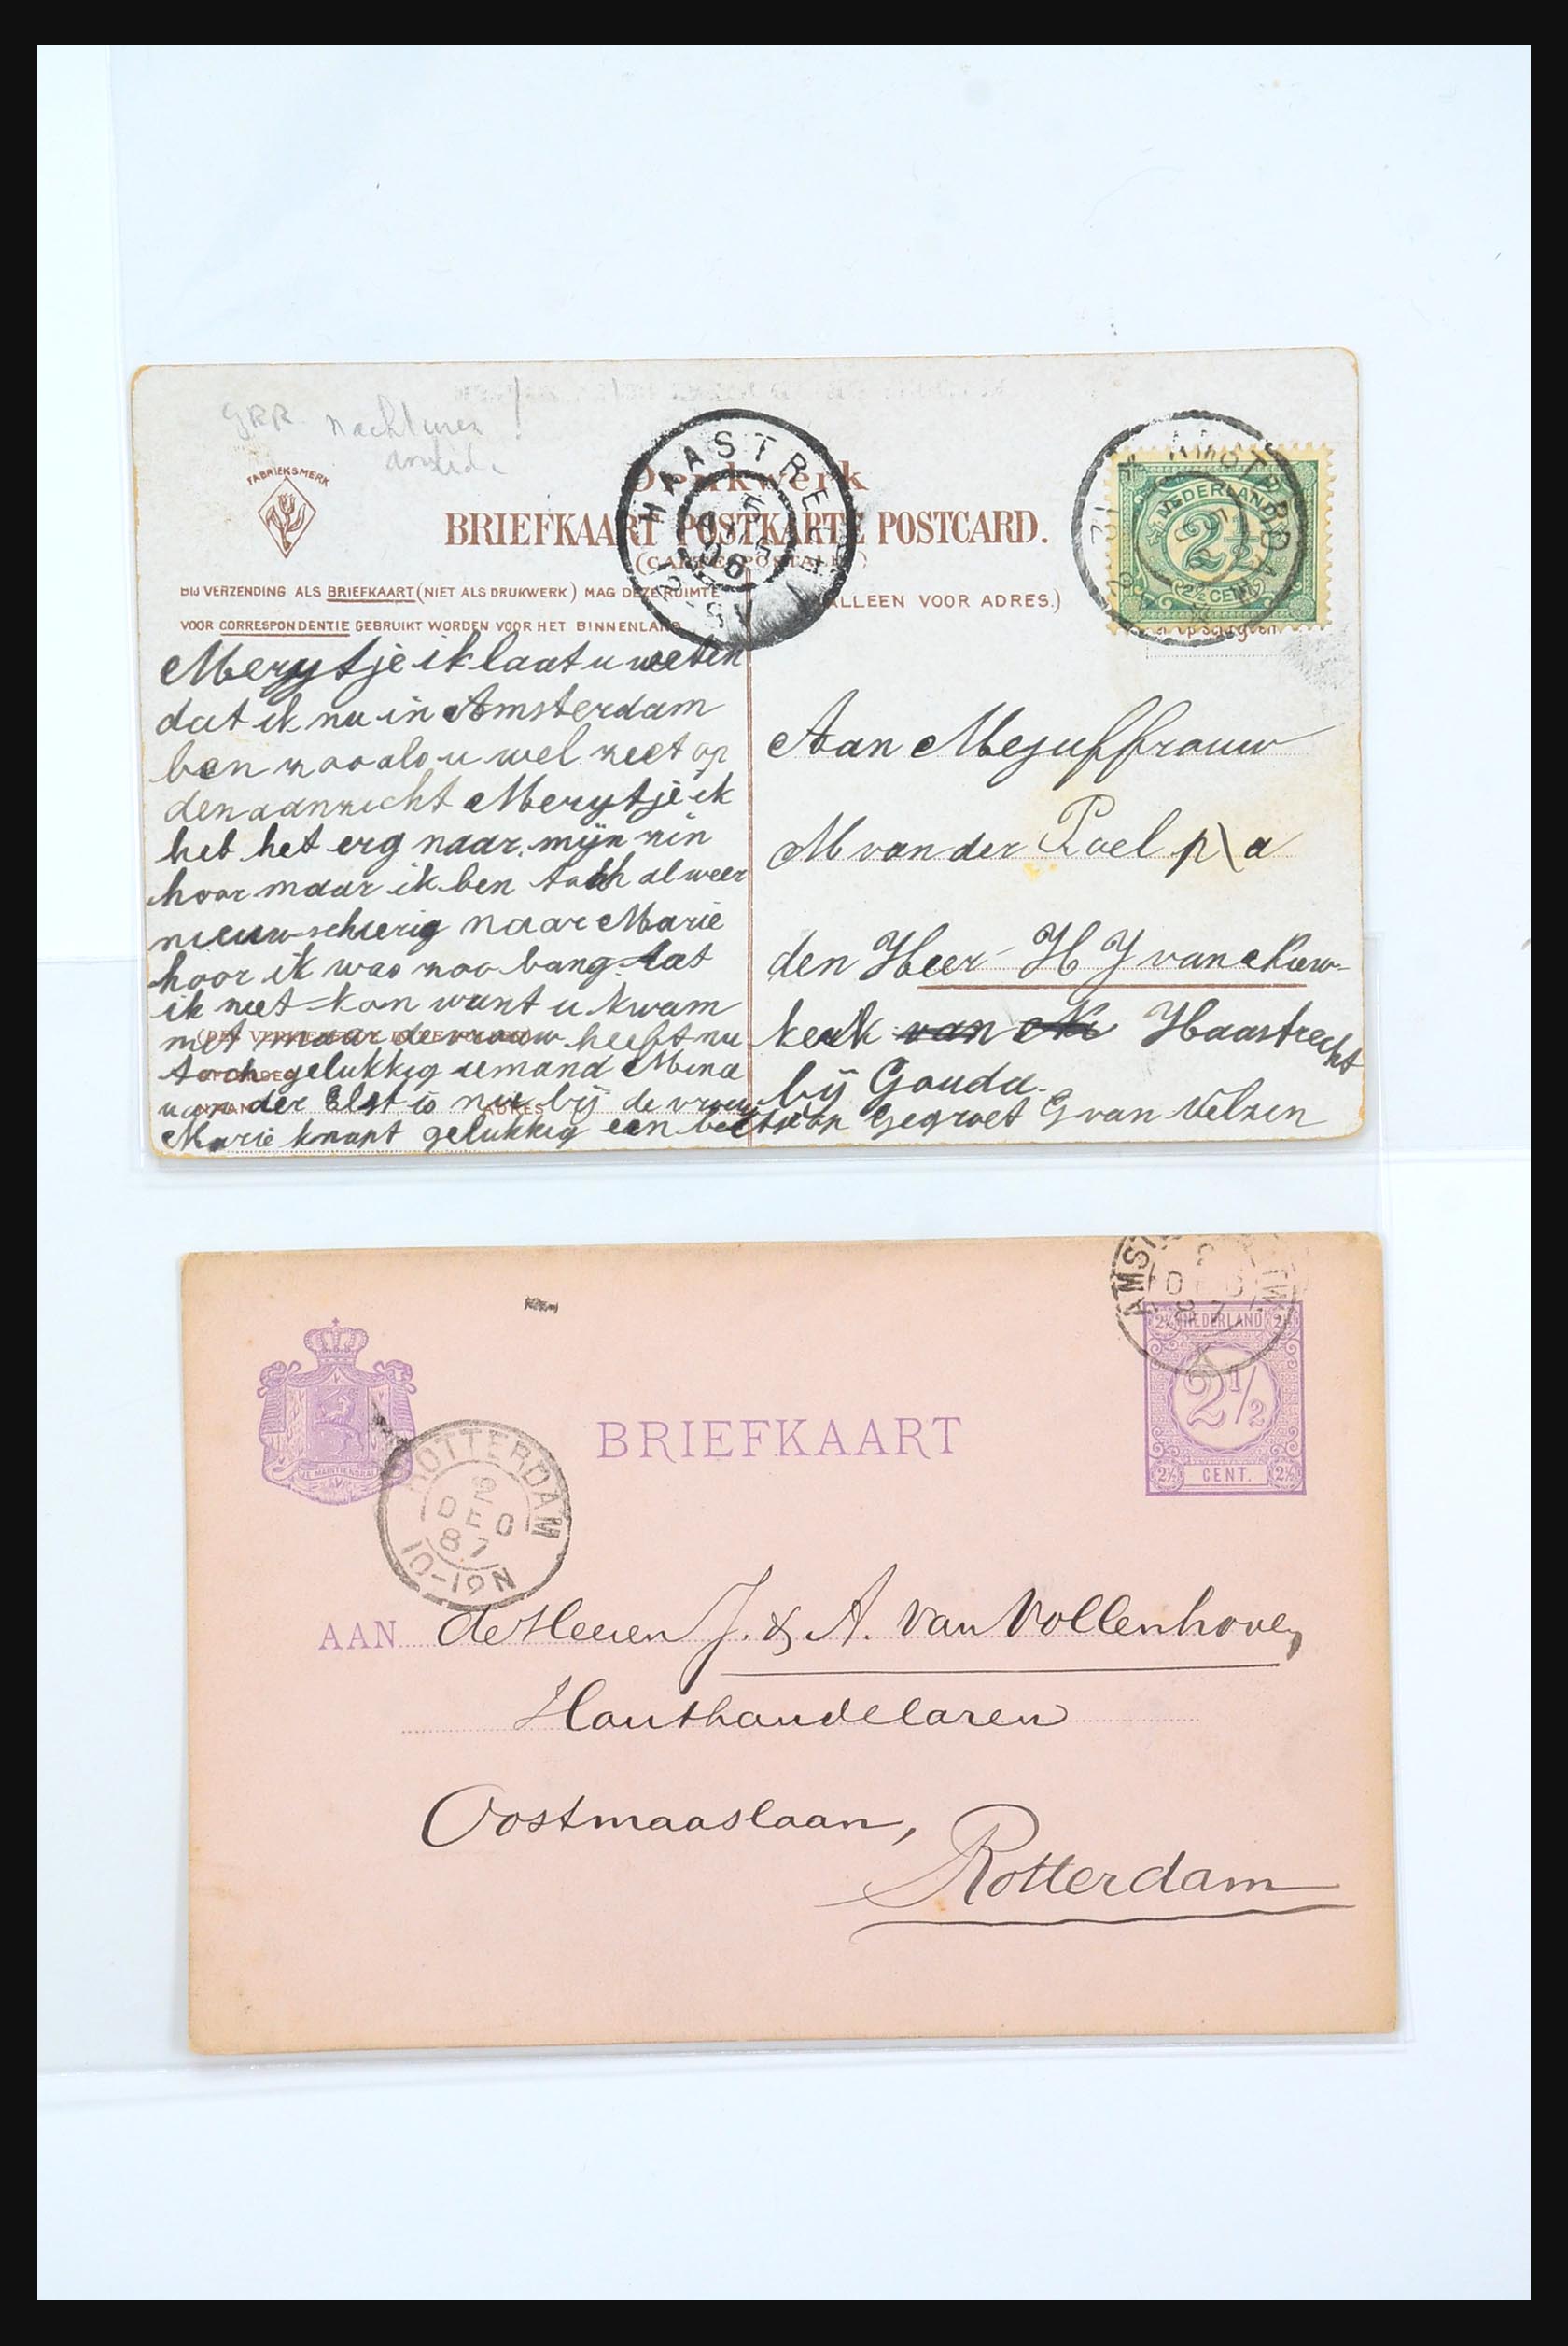 GRR nachturen !
FABRIEKSMERK
Drukwerk
BRIEFKAART POSTKARTE POSTCARD.
(CARTE POSTALE)
HAASTRECHT
NEDERLAND
2½
2½ CENT
BIJ VERZENDING ALS BRIEFKAART (NIET ALS DRUKWERK) MAG DEZE RUIMTE
VOOR CORRESPONDENTIE GEBRUIKT WORDEN VOOR HET BINNENLAND
(ALLEEN VOOR ADRES.)
Merytje ik laat u weten
dat ik nu in Amsterdam
ben zooals u wel ziet op
den aanzicht Merytje ik
heb het erg naar mijn zin
hoor maar ik ben toch al weer
nieuwschierig naar Marie
hoor ik was zoo bang dat
ik niet kon want u kwam
niet maar de vrouw heeft nu
toch gelukkig iemand Mina
van der Elst is nu bij de vrouw
Marie knapt gelukkig een beetje op Gegroet G van Velzen
ADRES
Aan Mejuffrouw
M van der Poel p\a
den Heer H J van Niew-
kerk van Ni Haastrecht
bij Gouda.
2½ NEDERLAND 2½
2½
2½ CENT. 2½
JE MAINTIENDRAI
BRIEFKAART
ROTTERDAM
9
DEC
87
10-12N
AAN de Heeren J. & A. van Vollenhoven
Houthandelaren
Oostmaaslaan,
Rotterdam